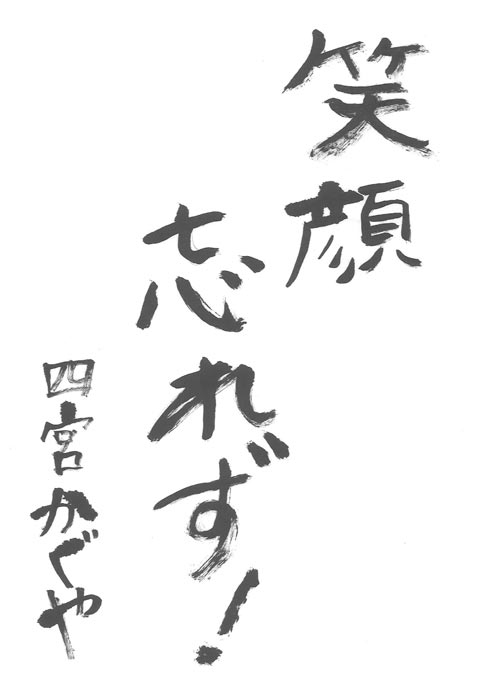 笑顔
忘れず!
四宮かぐや